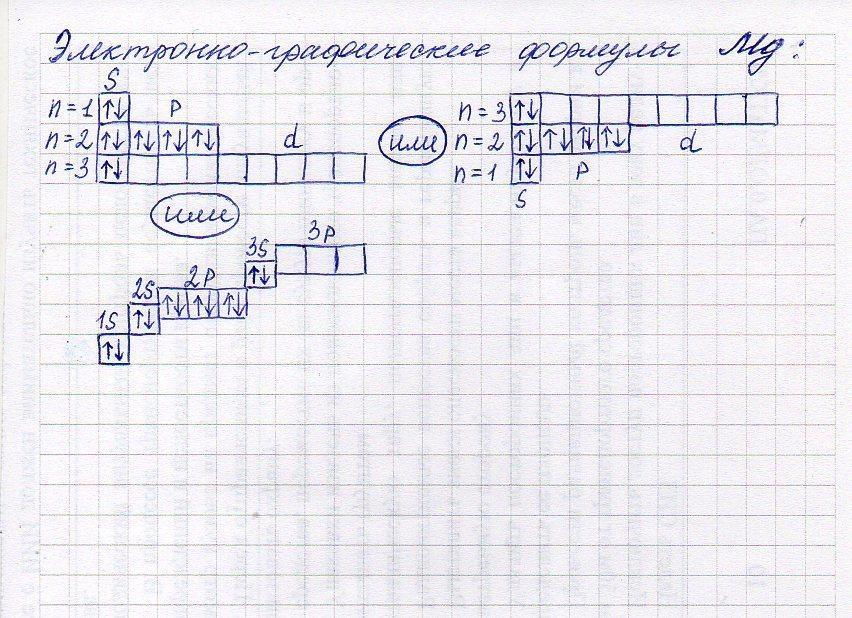 Электронно-графические формулы Mg:
S
n=1 ↑↓ P
n=2 ↑↓ ↑↓ ↑↓ ↑↓ d
n=3 ↑↓
или
n=3 ↑↓
n=2 ↑↓ ↑↓ ↑↓ ↑↓ d
n=1 ↑↓ P
S
или
3S 3P
↑↓
2S 2P
↑↓ ↑↓ ↑↓ ↑↓
1S
↑↓